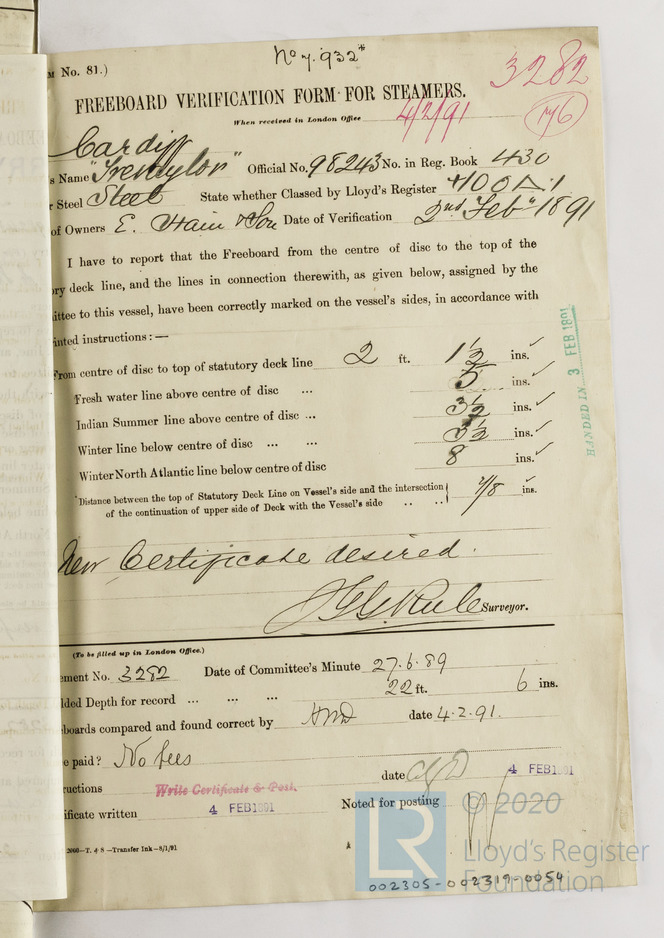 No 7.932*
M No. 81.)
3282
FREEBOARD VERIFICATION FORM FOR STEAMERS.
When received in London Office 4/2/91
176
Cardiff
's Name "Trewylor" Official No. 98243 No. in Reg. Book 430
r Steel Steel State whether Classed by Lloyd's Register +100A1
of Owners E. Hain & Son Date of Verification 2nd Feby 1891
I have to report that the Freeboard from the centre of disc to the top of the
ory deck line, and the lines in connection therewith, as given below, assigned by the
mittee to this vessel, have been correctly marked on the vessel's sides, in accordance with
inted instructions:—
From centre of disc to top of statutory deck line 2 ft. 1½ ins.
Fresh water line above centre of disc ... 5 ins.
Indian Summer line above centre of disc ... 3½ ins.
Winter line below centre of disc ... ... 3½ ins.
Winter North Atlantic line below centre of disc 8 ins.
*Distance between the top of Statutory Deck Line on Vessel's side and the intersection
of the continuation of upper side of Deck with the Vessel's side .. .. 7/8 ins.
HANDED IN 3 FEB 1891
New Certificate desired.
Rule Surveyor.
(To be filled up in London Office.)
ement No. 3282 Date of Committee's Minute 27.6.89
lded Depth for record ... ... ... 22 ft. 6 ins.
eboards compared and found correct by date 4.2.91.
e paid? No fees
date 4 FEB 1891
ructions Write Certificate & Post.
ificate written 4 FEB 1891 Noted for posting
2000—T. & S—Transfer Ink—8/1/91
© 2020
LR
Lloyd's Register
Foundation
002305-002319-0054